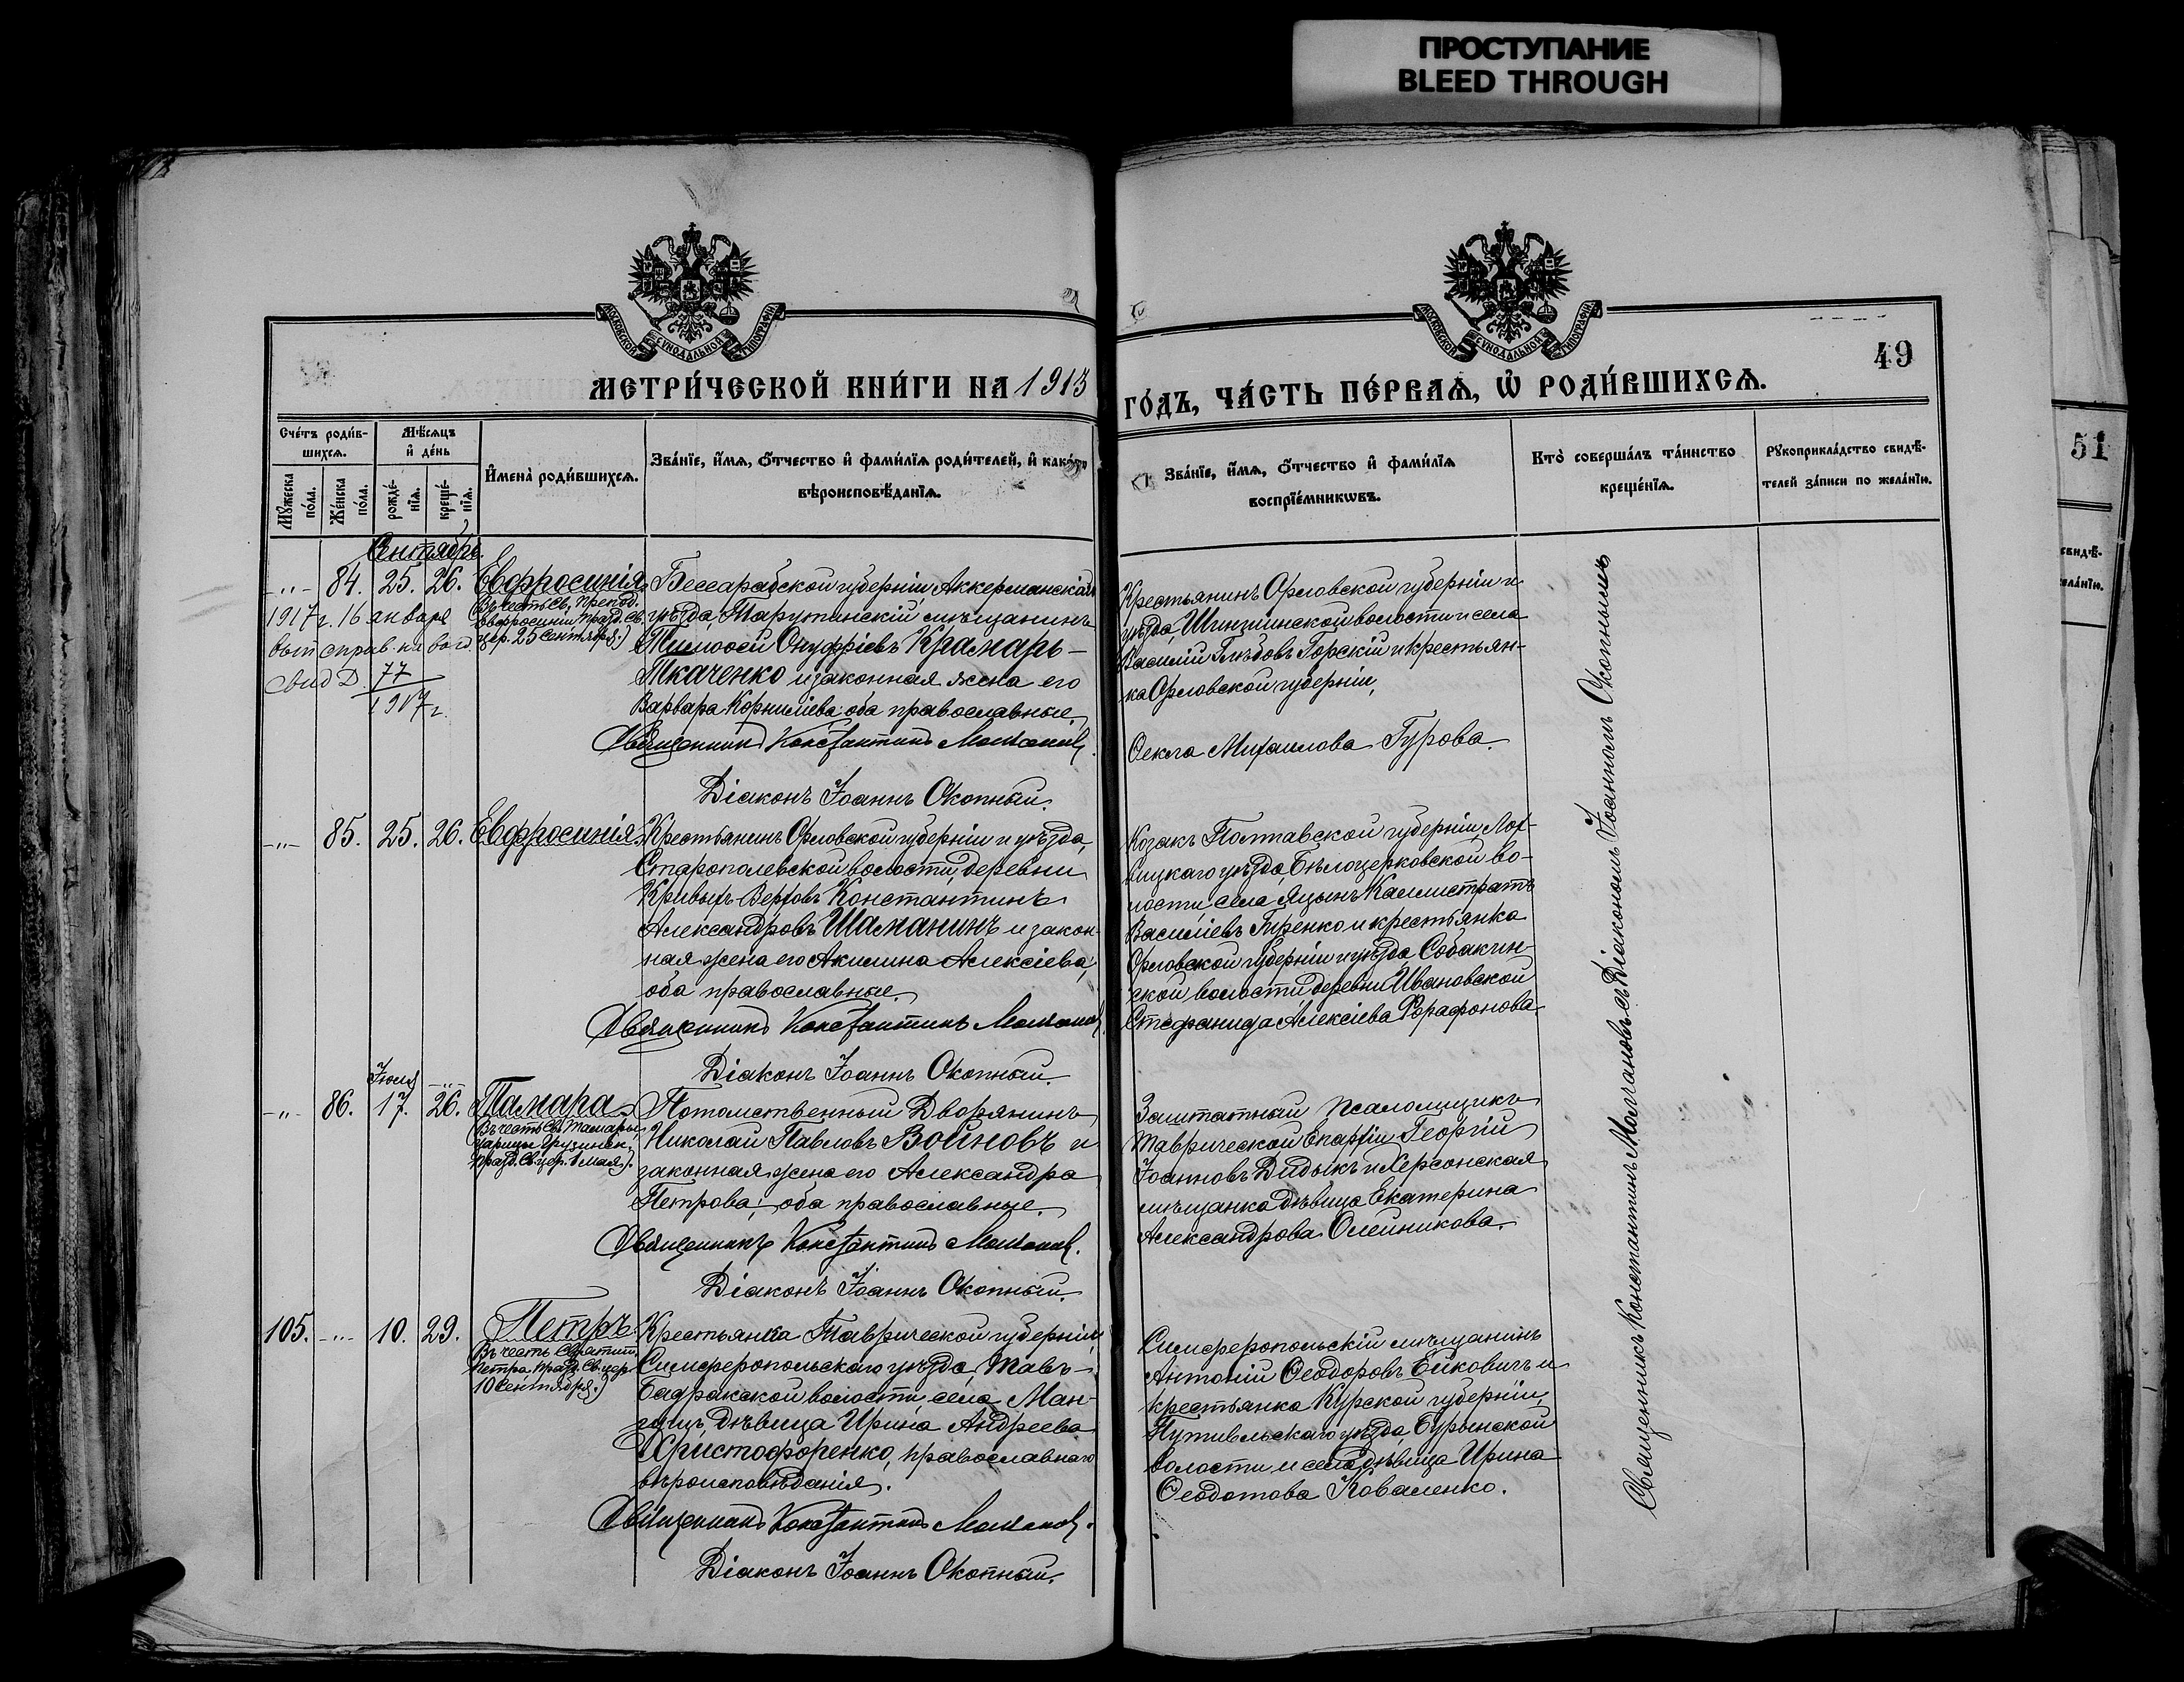 ПРОСТУПАНИЕ
BLEED THROUGH
МОСКОВСКОЙ СУНОДАЛЬНОЙ ТИПОГРАФІИ
МОСКОВСКОЙ СУНОДАЛЬНОЙ ТИПОГРАФІИ
49
МЕТРИ́ЧЕСКОЙ КНИ́ГИ НА 1913
ГО́ДЪ, ЧА́СТЬ ПЕ́РВАѦ, Ѡ҆ РОДИ́ВШИХСѦ.
51
Сче́тъ роди́в-
шихсѧ.
Мѣ́сѧцъ
и҆ де́нь
Мꙋ́жеска
по́ла.
Же́нска
по́ла.
рожде́-
нїѧ.
креще́-
нїѧ.
И҆мена̀ роди́вшихсѧ.
Зва́нїе, и҆́мѧ, ѻ҆́тчество и҆ фами́лїѧ роди́телей, и҆ како́гѡ
вѣроисповѣ́данїѧ.
Зва́нїе, и҆́мѧ, ѻ҆́тчество и҆ фами́лїѧ
воспрїе́мникѡвъ.
Кто̀ соверша́лъ та́инство
креще́нїѧ.
Рꙋкоприкла́дство свидѣ́-
телей за́писи по жела́нїю.
Сентябрь.
-"- 84. 25. 26. Евфросинія
(Въ честь Св. Препод.
Евфросиніи празд. Св.
цер. 25 сентября.)
1917 г. 16 января
вып справ. на
свид 77
1917 г.
Бессарабской губерніи Аккерманскаго
уѣзда, Тарутинскій мѣщанинъ
Тимоѳей Онуфріевъ Крамарь-
Ткаченко и законная жена его
Варвара Корниліева, оба православные.
Священникъ Константинъ Молчановъ.
Діаконъ Іоаннъ Окопный.
Крестьянинъ Орловской губерніи и
уѣзда, волости и села
Василій Глѣбовъ Горскій и крестьян-
ка Орловской губерніи,
Ѳекла Михаилова Гурова.
-"- 85. 25. 26. Евфросинія.
Крестьянинъ Орловской губерніи и уѣзда,
Старополевской волости, деревни
Кривыхъ Верховъ Константинъ
Александровъ Шаманинъ и закон-
ная жена его Акилина Алексіева,
оба православные.
Священникъ Константинъ Молчановъ.
Діаконъ Іоаннъ Окопный.
Козакъ Полтавской губерніи, Лох-
вицкаго уѣзда, Бѣлоцерковской во-
лости, села Яцынъ Каллистратъ
Василіевъ Гиренко и крестьянка
Орловской губерніи и уѣзда Собакин-
ской волости деревни Ивановской
Стефанида Алексіева Фарафонова.
Іюля -"-
-"- 86. 17. 26. Тамара.
(Въ честь Св. Тамары
Царицы Грузинск.
празд. Св. цер. 1 мая.)
Потомственный Дворянинъ
Николай Павловъ Войновъ и
законная жена его Александра
Петрова, оба православные.
Священникъ Константинъ Молчановъ.
Діаконъ Іоаннъ Окопный.
Заштатный псаломщикъ
Таврической Епархіи Георгій
Іоанновъ Дидыкъ и Херсонская
мѣщанка дѣвица Екатерина
Александрова Олейникова.
105. -"- 10. 29. Петръ.
(Въ честь Святит.
Петра празд. Св. цер.
10 Сентября.)
Крестьянка Таврической губерніи,
Симферопольскаго уѣзда, Тавъ-
Бадракской волости, села Ман-
гушъ, дѣвица Ирина Андреева
Христофоренко, православнаго
вѣроисповѣданія.
Священникъ Константинъ Молчановъ.
Діаконъ Іоаннъ Окопный.
Симферопольскій мѣщанинъ
Антоній Ѳеодоровъ Ейковичъ и
крестьянка Курской губерніи,
Путивльскаго уѣзда, Бурынской
волости и села дѣвица Ирина
Ѳеодотова Коваленко.
Священникъ Константинъ Молчановъ съ Діакономъ Іоанномъ Окопнымъ